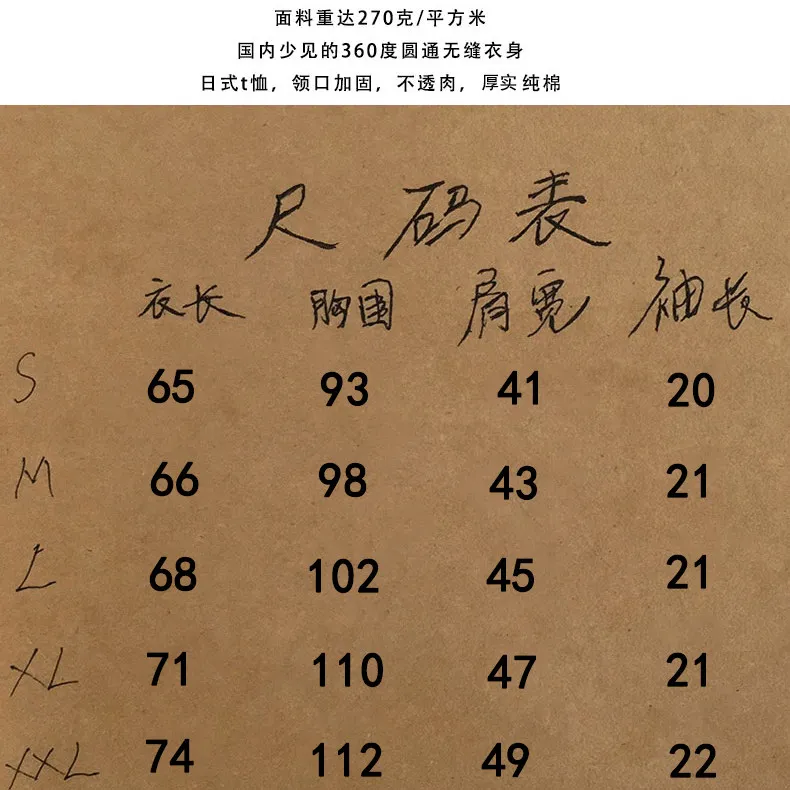 面料重达270克/平方米
国内少见的360度圆通无缝衣身
日式t恤，领口加固，不透肉，厚实纯棉
尺码表
衣长 胸围 肩宽 袖长
S 65 93 41 20
M 66 98 43 21
L 68 102 45 21
XL 71 110 47 21
XXL 74 112 49 22